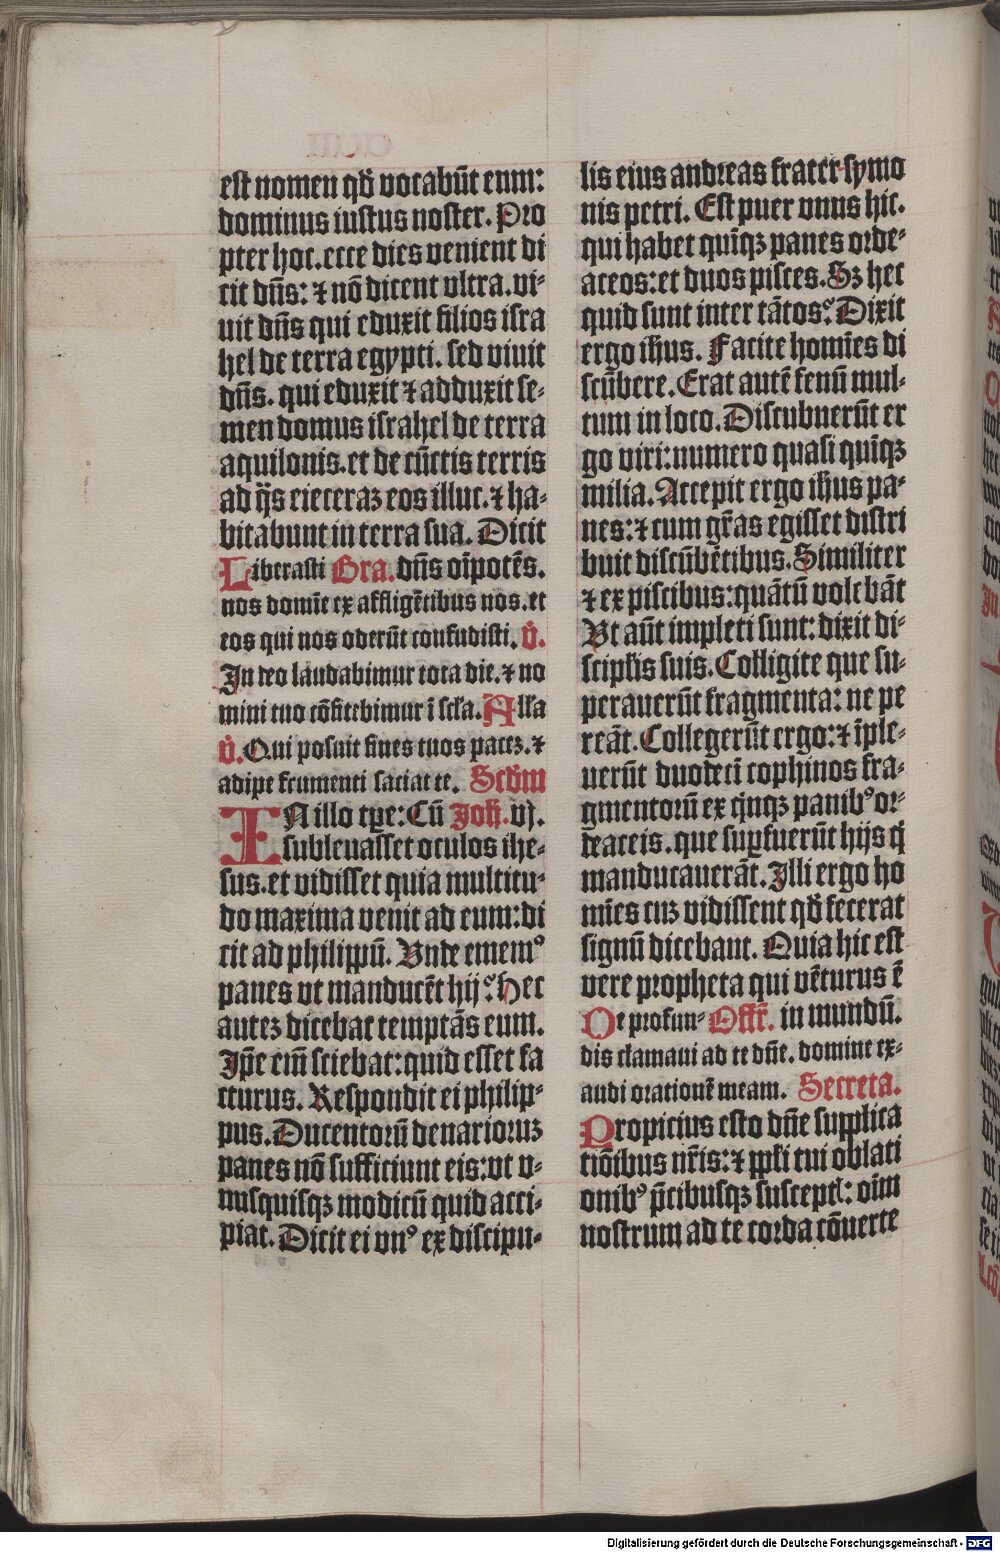 est nomen qđ vocabūt eum:
dominus iustus noster. Pro
pter hoc. ecce dies venient di
cit dn̄s: ⁊ nō dicent vltra. vi-
uit dn̄s qui eduxit filios isra
hel de terra egypti. sed viuit
dn̄s. qui eduxit ⁊ adduxit se-
men domus israhel de terra
aquilonis. et de cūctis terris
ad q̄s eieceraꝫ eos illuc. ⁊ ha-
bitabunt in terra sua. Dicit
Liberasti Gra. dn̄s oīpotēs.
nos domīe ex affligētibus nos. et
eos qui nos oderūt confudisti. v̇.
In deo laudabimur tota die. ⁊ no
mini tuo cōfitebimur ī scła. Alła
v̇. Qui posuit fines tuos paceꝫ. ⁊
adipe frumenti saciat te. Scđm
IN illo tꝑe: Cū Joħ. vj.
subleuasset oculos ihe-
sus. et vidisset quia multitu-
do maxima venit ad eum: di
cit ad philippū. Vnde ememꝰ
panes vt manducēt hij? Hec
auteꝫ dicebat temptās eum.
Ip̄e em̄ sciebat: quid esset fa
cturus. Respondit ei philip-
pus. Ducentorū denarioruꝫ
panes nō sufficiunt eis: vt v-
nusquisqꝫ modicū quid acci-
piat. Dicit ei vnꝰ ex discipu-
lis eius andreas frater symo
nis petri. Est puer vnus hic.
qui habet quīqꝫ panes orde-
aceos: et duos pisces. Sꝫ hec
quid sunt inter tātos? Dixit
ergo ih̄us. Facite homīes di
scūbere. Erat autē fenū mul-
tum in loco. Discubuerūt er
go viri: numero quasi quīqꝫ
milia. Accepit ergo ih̄us pa-
nes: ⁊ cum gr̄as egisset distri
buit discūbētibus. Similiter
⁊ ex piscibus: quātū volebāt
Vt aūt impleti sunt: dixit di-
scipłis suis. Colligite que su-
perauerūt fragmenta: ne pe
reāt. Collegerūt ergo: ⁊ īple-
uerūt duodecī cophinos fra-
gmentorū ex qⁱnqꝫ panibꝰ or-
deaceis. que suꝑfuerūt hijs q̇
manducauerāt. Illi ergo ho
mīes cuꝫ vidissent qđ fecerat
signū dicebant. Quia hic est
vere propheta qui vēturus ē
De profun- Offr̄. in mundū.
dis clamaui ad te dn̄e. domine ex-
audi orationē meam. Secreta.
Propicius esto dn̄e supplica
tiōibus nr̄is: ⁊ ppłi tui oblati
onibꝰ p̄cibusqꝫ susceptꝭ: oīm
nostrum ad te corda cōuerte
Digitalisierung gefördert durch die Deutsche Forschungsgemeinschaft - DFG